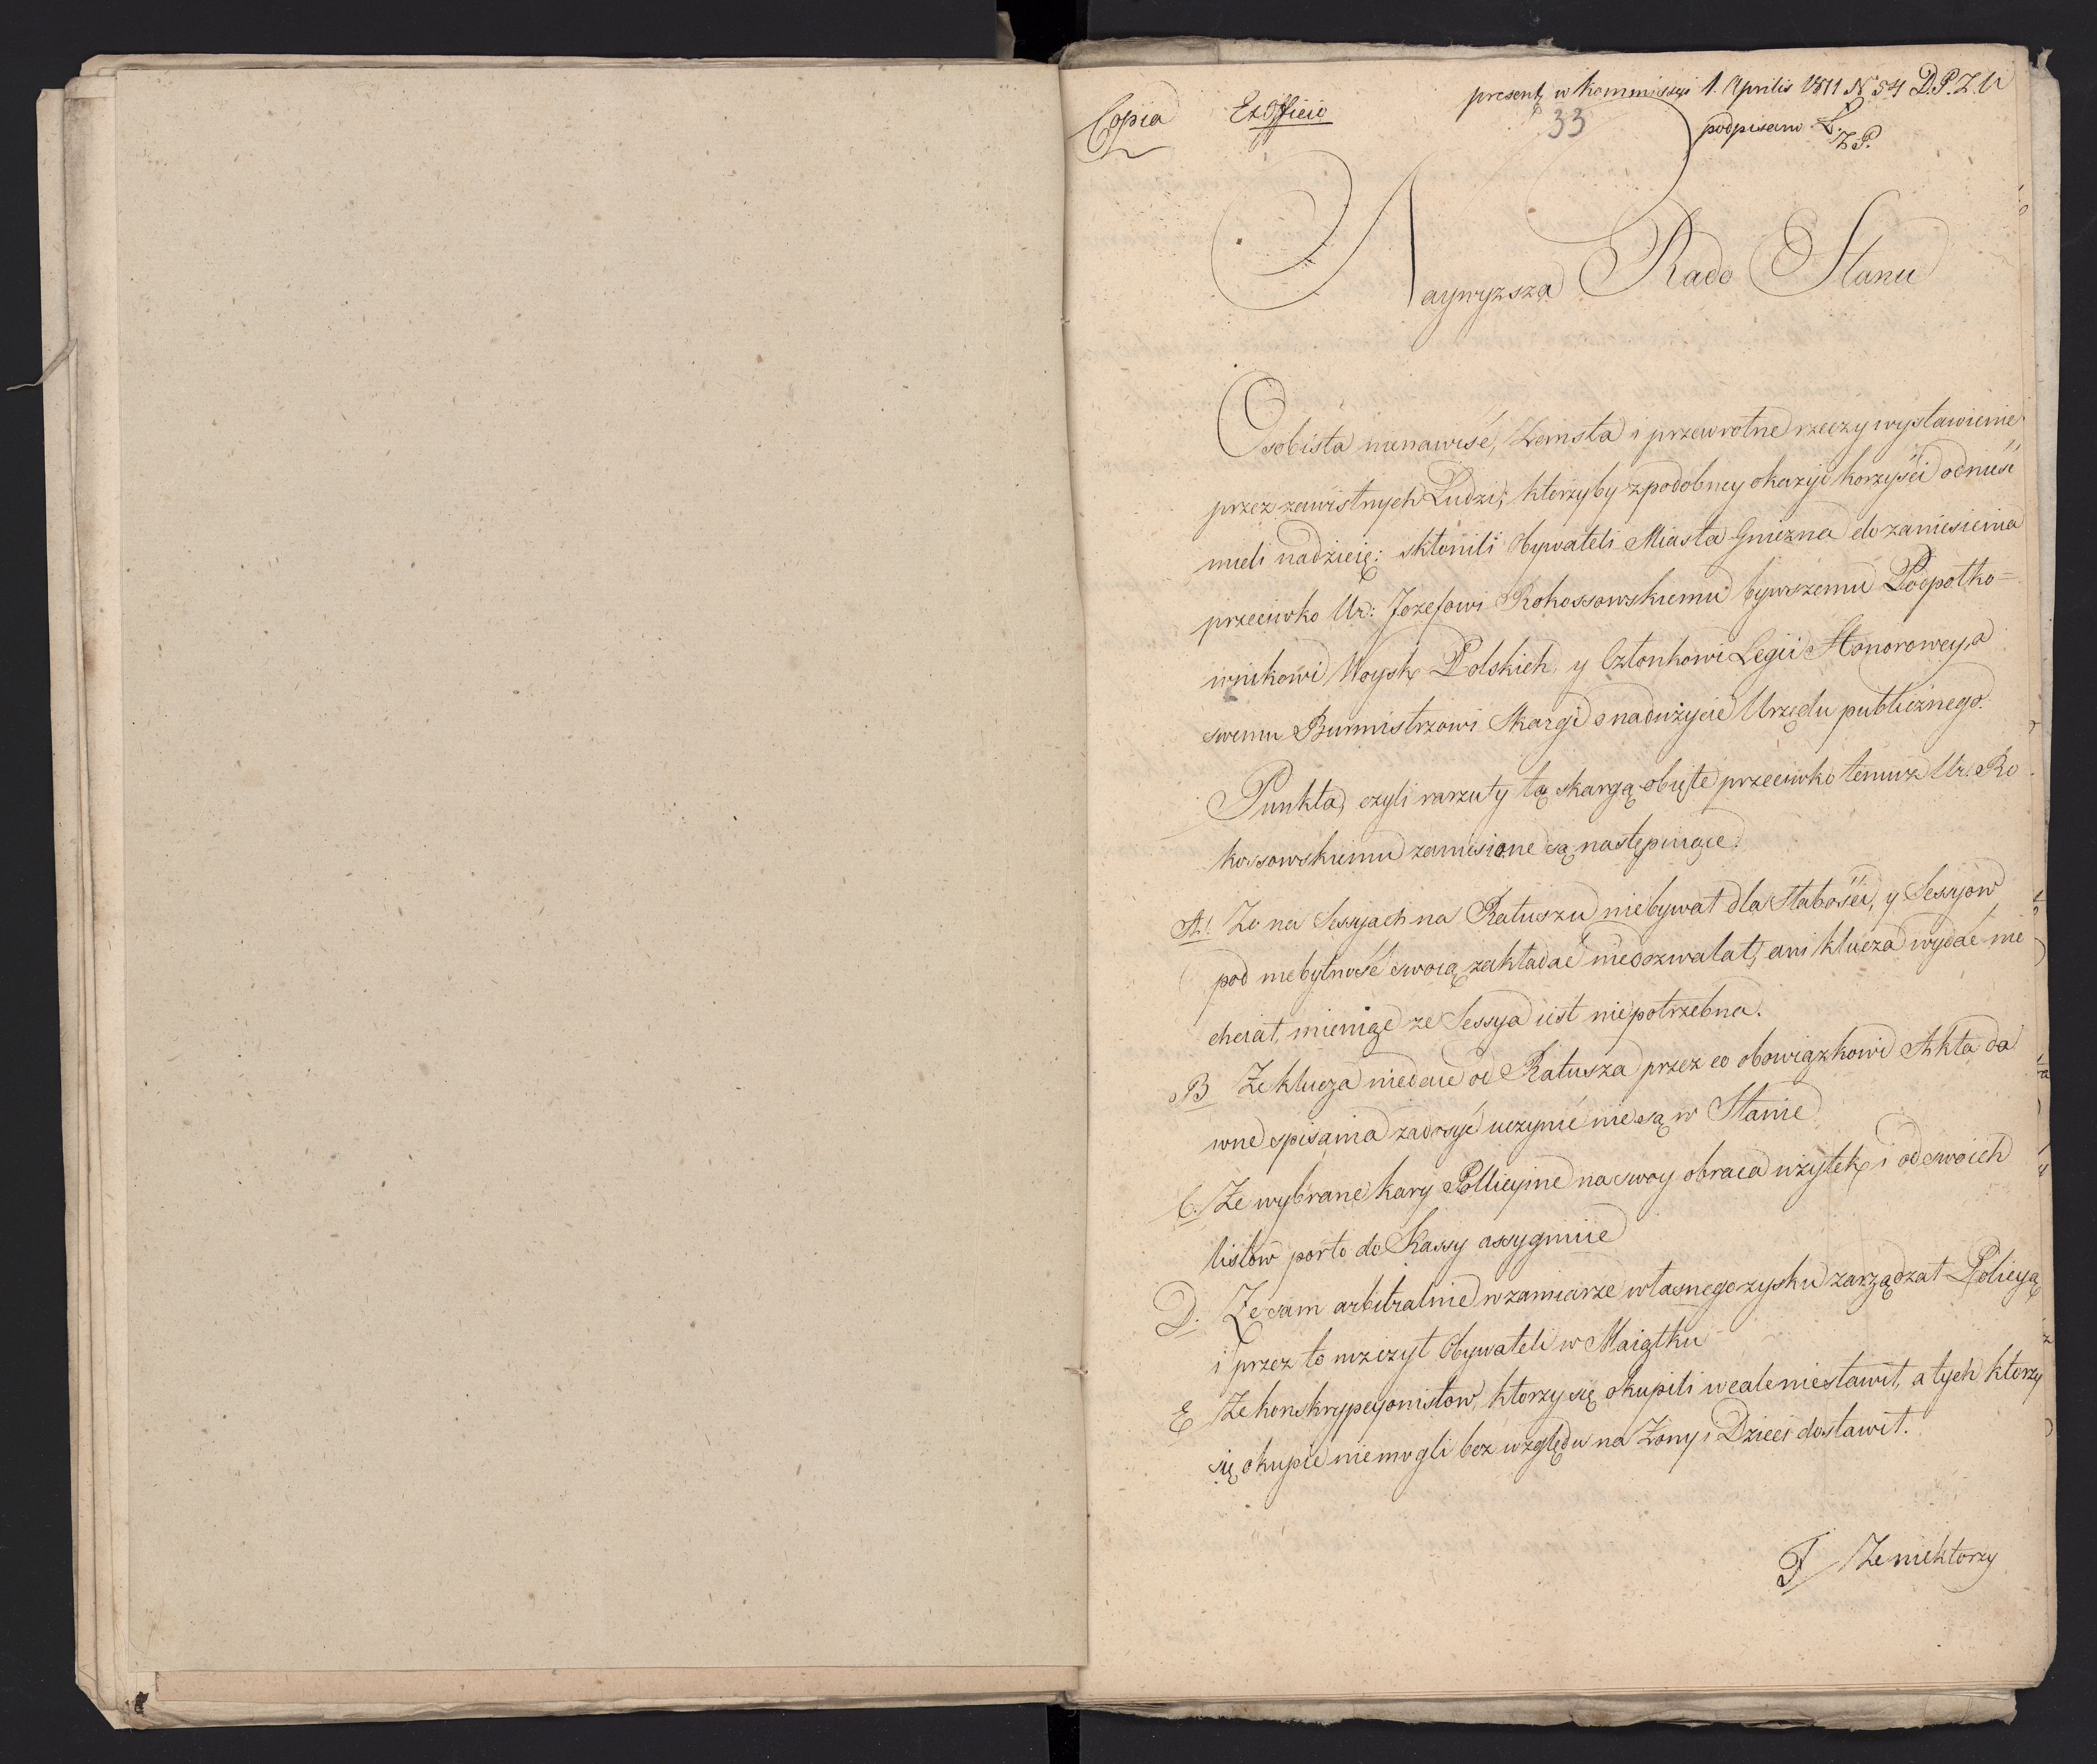 present w Kommissyi 1. Aprilis 1811 N 54 D.P.Z.U
Copia Ex Officio
33
podpisano L.
Z.P.
Naywyzsza Rado Stanu
Osobista nienawiść, Zemsta i przewrotne rzeczy wystawienie
przez zawistnych Ludzi, ktorzyby z podobney okazyi korzyści odnieść
mieli nadzieię: skłonili Obywateli Miasta Gniezna do zaniesienia
przeciwko Ur: Jozefowi Rokossowskiemu bywszemu Podpółko=
wnikowi Woysk Polskich y Członkowi Legii Honorowey, a
swemu Burmistrzowi Skargi o nadużycie Urzędu publicznego.
Punkta, czyli zarzuty tą skargą obięte przeciwko temuż Ur. Ro
kossowskiemu zaniesione są następuiące.
A. Ze na Sessyach na Ratuszu niebywał dla Słabości, y Sessyow
pod niebytność swoią zakładać niedozwalał, ani klucza wydać nie
chciał, mieniąc ze Sessya iest niepotrzebna.
B Ze klucza niedaie od Ratusza przez co obowiązkowi Akta da
wne spisania zadosyć uczynić nie są w Stanie
C. Ze wybrane kary Policyine na swoy obraca użytek, i od swoich
listow porto do Kassy assygnuie
D. Ze sam arbitralnie w zamiarze własnego zysku zarządzał Policyą
i przez to niszczył Obywateli w Maiątku
E Ze konskrypcyonistow, ktorzy się okupili wcale niestawił, a tych ktorzy
się okupić niemogli bez względu na Zony i Dzieci dostawił.
F Ze niektorzy